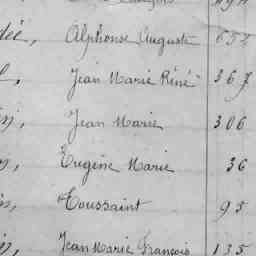 dée, Alphonse Auguste 652
Jean Marie Réné 367
Jean Marie 306
Eugène Marie 36
Toussaint 95
Jean Marie François 135